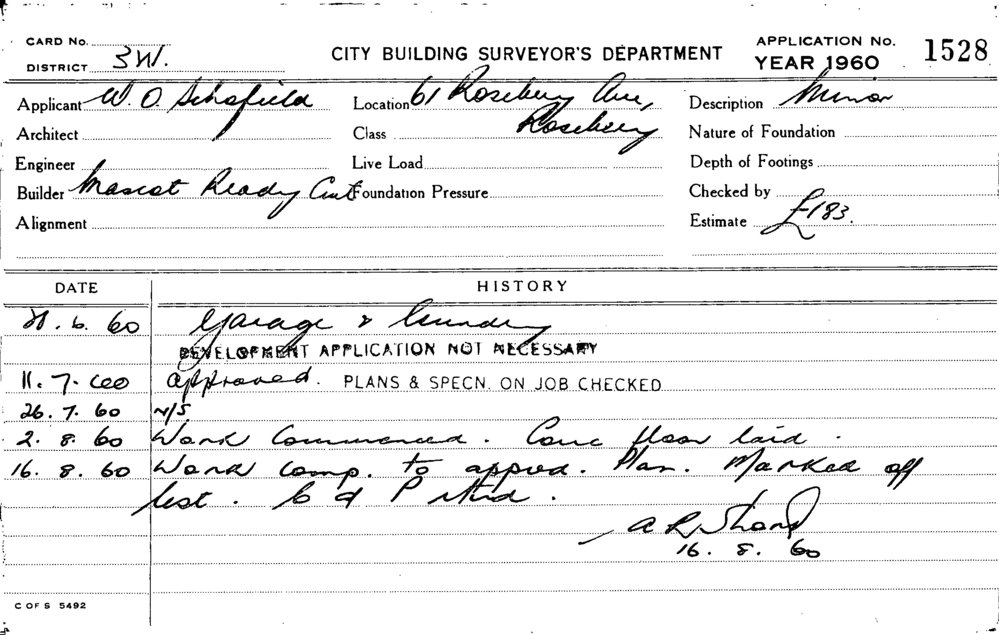 CARD No.
DISTRICT 3W.
CITY BUILDING SURVEYOR'S DEPARTMENT
APPLICATION No.
YEAR 1960
1528
Applicant W. O. Schofield Location 61 Rosebery Ave, Description Minor
Architect Class Rosebery Nature of Foundation
Engineer Live Load Depth of Footings
Builder Mascot Ready Cut Foundation Pressure Checked by
Alignment Estimate £183.
DATE HISTORY
21. 6. 60 Garage & Laundry
DEVELOPMENT APPLICATION NOT NECESSARY
11. 7. 60 Approved. PLANS & SPECN. ON JOB CHECKED
26. 7. 60 N/S
2. 8. 60 Work Commenced. Conc floor laid.
16. 8. 60 Work comp. to approd. Plan. Marked off
list.
16. 8. 60
C OF S 5492